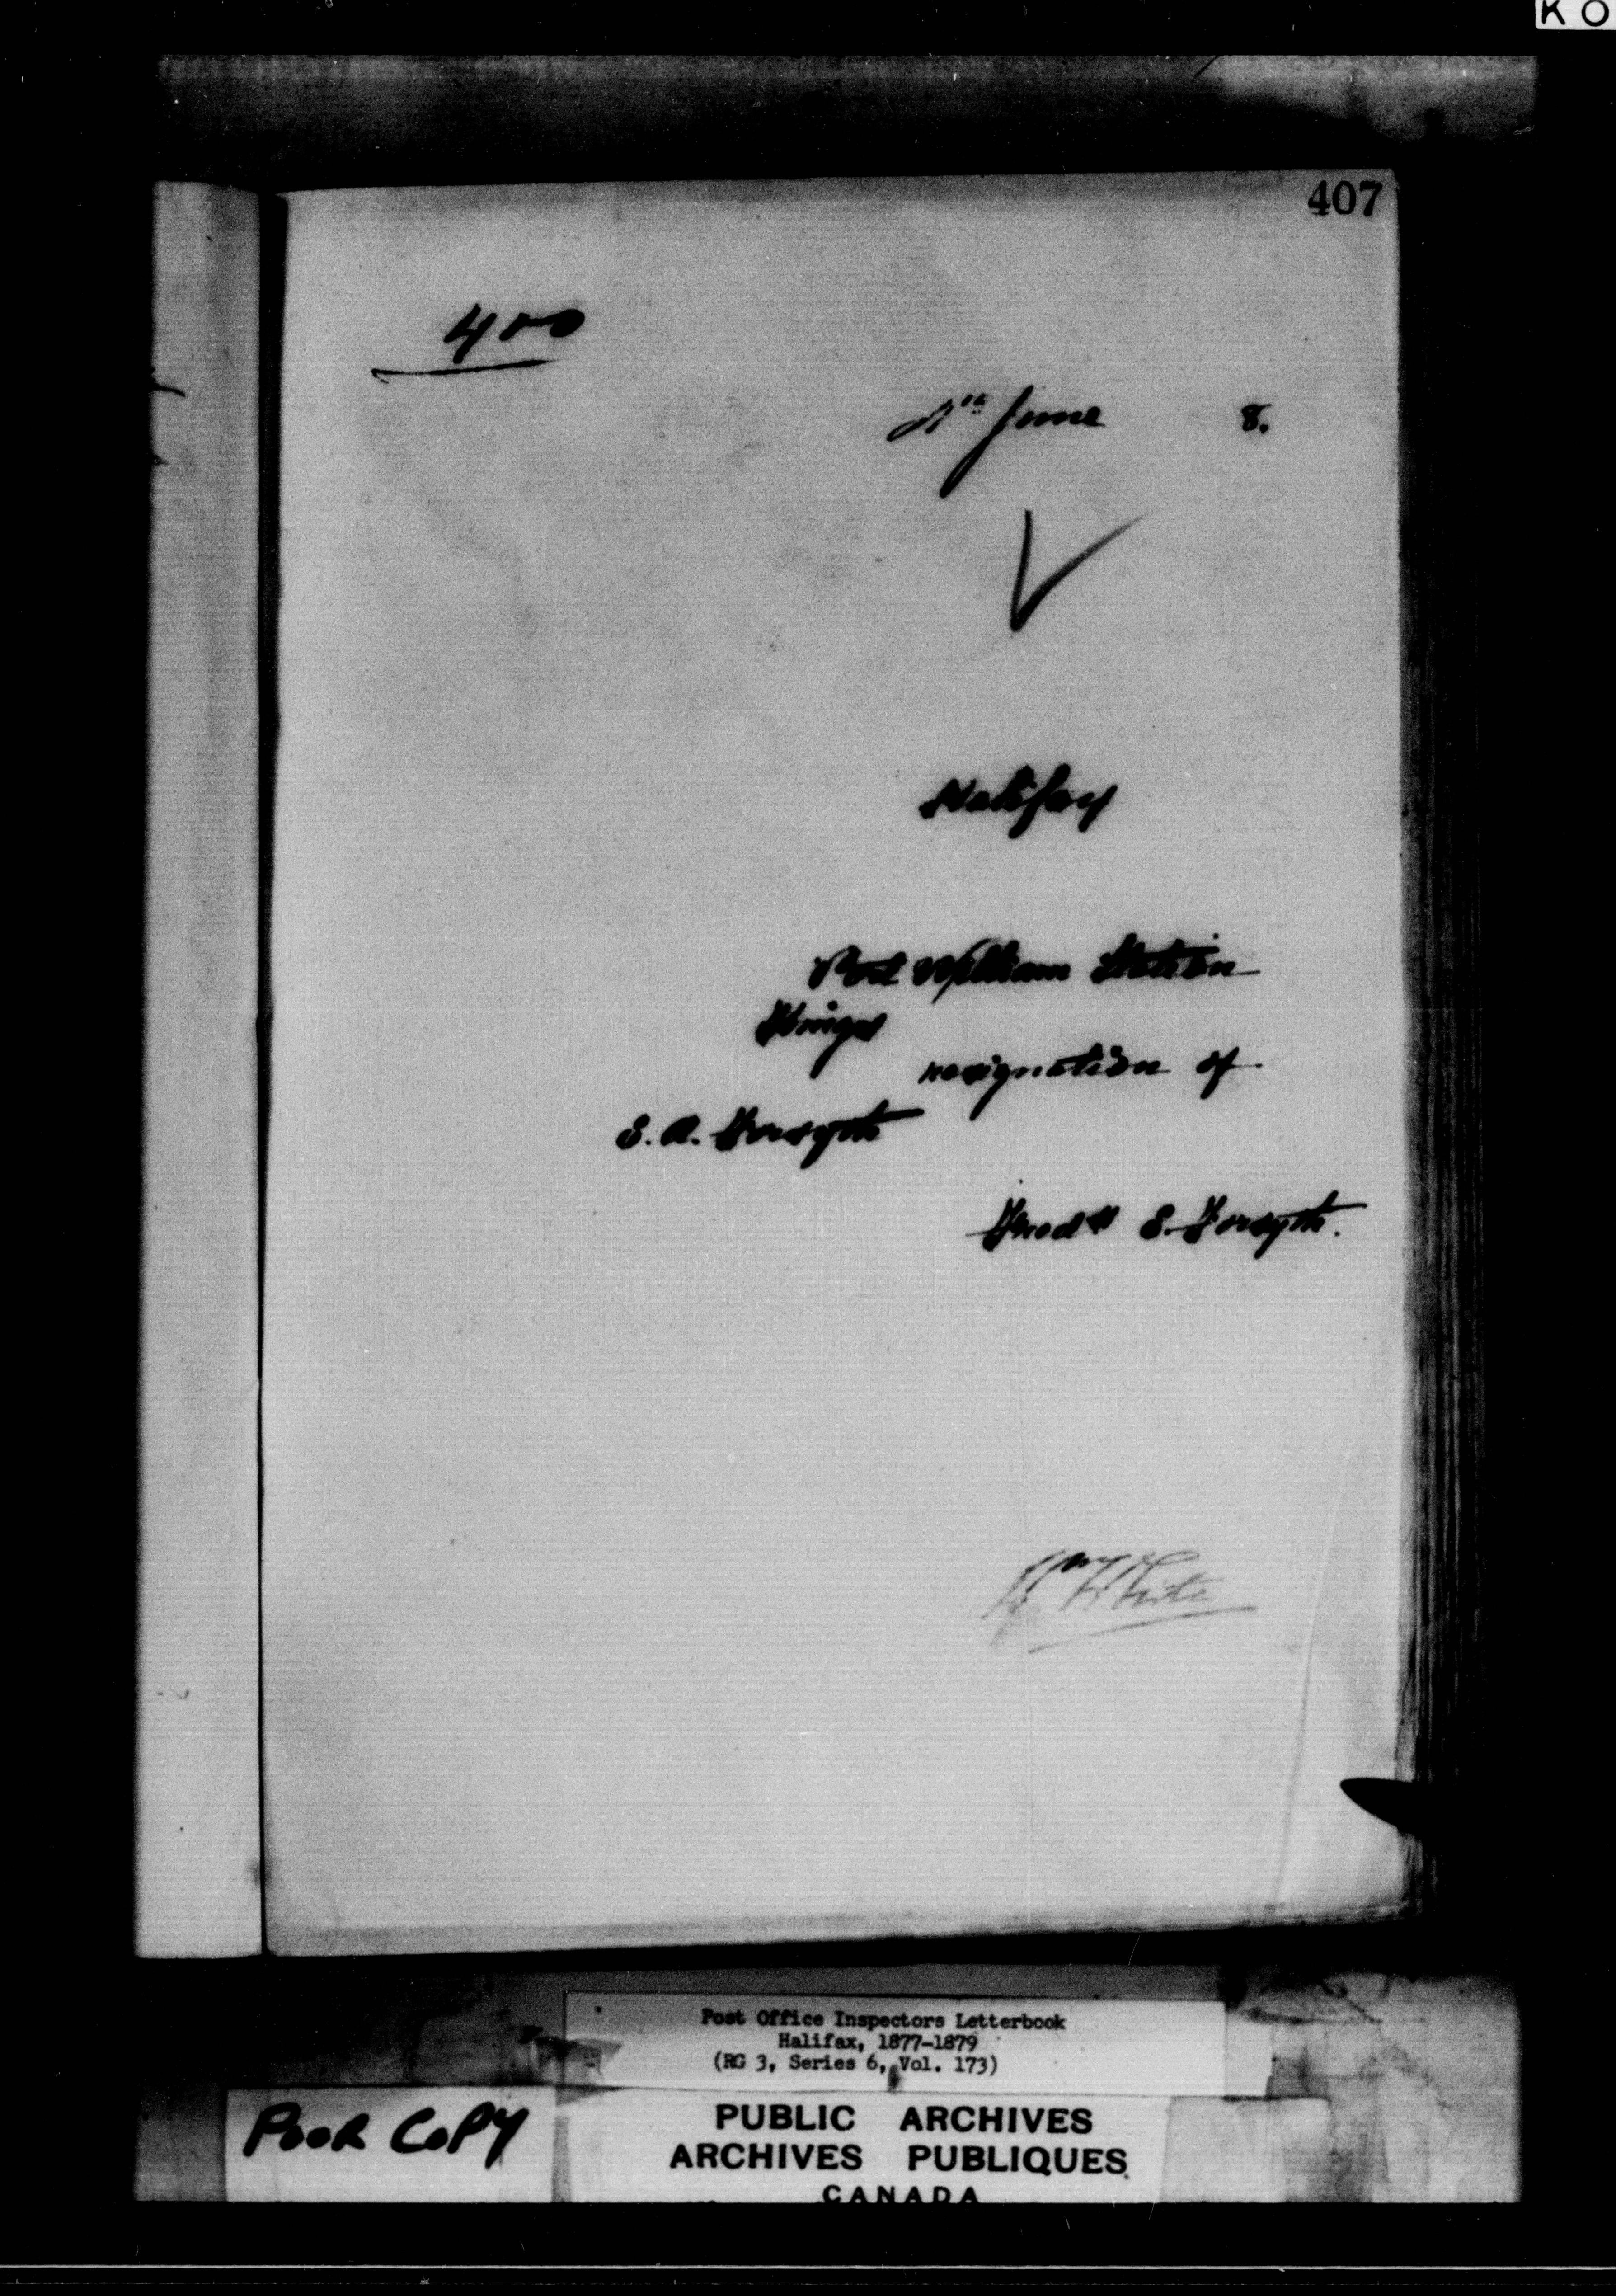 K O
407
400
June 8.
Halifax
Port William Station
Kings
resignation of
E. A. Forsyth
Fredk E. Forsyth.
Wm White
Post Office Inspectors Letterbook
Halifax, 1877-1879
(RG 3, Series 6, Vol. 173)
POOR COPY
PUBLIC ARCHIVES
ARCHIVES PUBLIQUES
CANADA